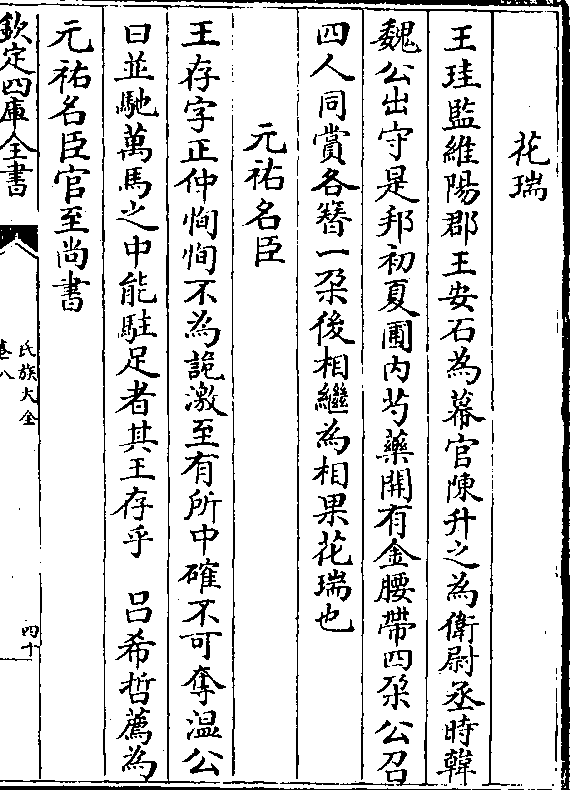 花瑞
王珪監維陽郡王安石為幕官陳升之為衛尉丞時韓
魏公出守是邦初夏圃内芍藥開有金腰帶四朶公召
四人同賞各簪一朶後相繼為相果花瑞也
元祐名臣
王存字正仲恂恂不為詭激至有所中確不可奪温公
曰並馳萬馬之中能駐足者其王存乎　吕希哲薦為
元祐名臣官至尚書
欽定四庫全書
氏族大全
卷八
四十